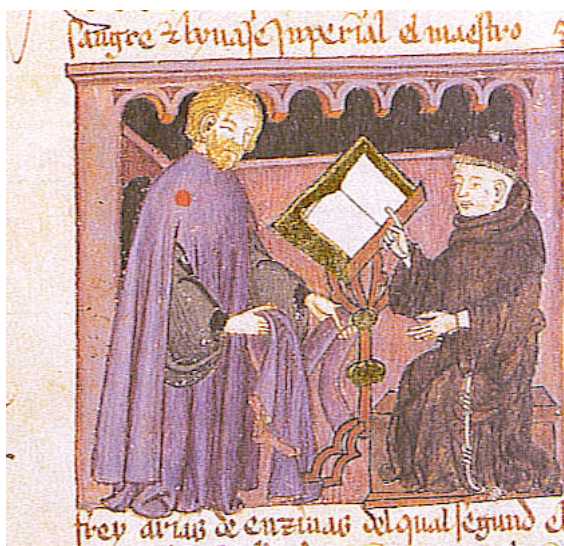 sangre & lynaje Inperial el maestro
frey arias de enzinas del qual segund el